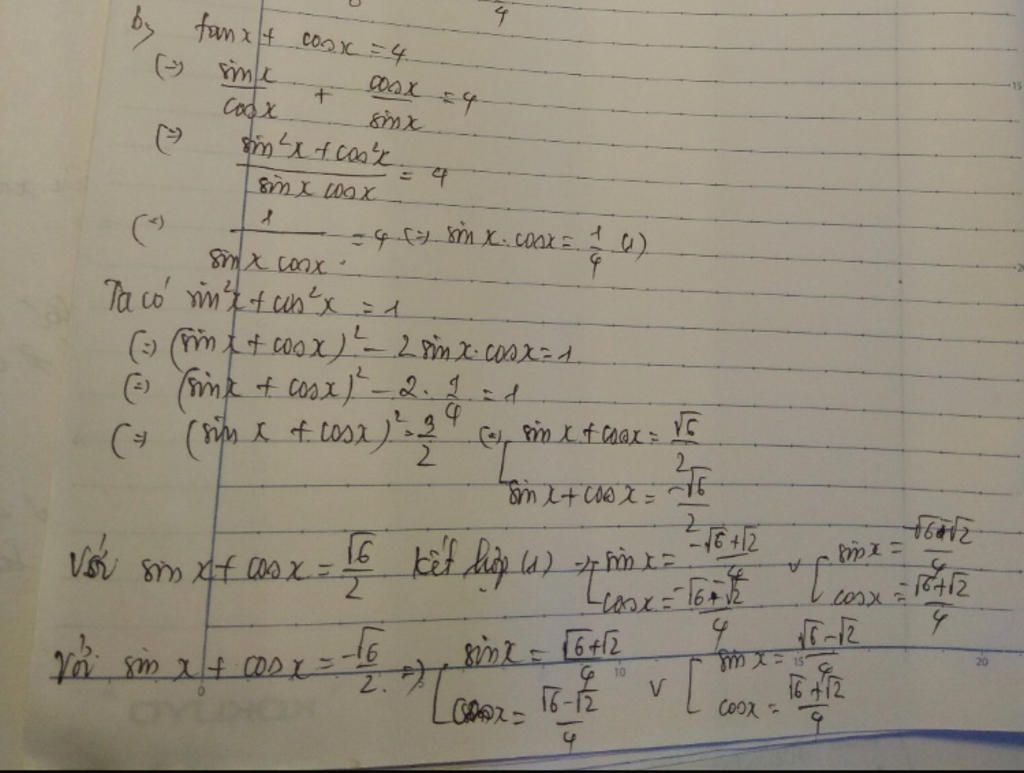 4
b, tanx + cosx = 4
(=) sinx/cosx + cosx/sinx = 4
(=) (sin²x + cos²x)/(sinx cosx) = 4
(=) 1/(sinx cosx) = 4 (=) sinx.cosx = 1/4 (1)
Ta có sin²x + cos²x = 1
(=) (sinx + cosx)² - 2sinx.cosx = 1
(=) (sinx + cosx)² - 2. 1/4 = 1
(=) (sinx + cosx)² = 3/2 (=) [ sinx + cosx = √6/2
sinx + cosx = -√6/2
Với sinx + cosx = √6/2 kết hợp (1) => [ sinx = (-√6+√2)/4 v [ sinx =
cosx = v cosx = (√6+√2)/4
Với sinx + cosx = -√6/2 => [ sinx = (√6+√2)/4 v [ sinx = (√6-√2)/4
cosx = (√6-√2)/4 cosx = (√6+√2)/4
15
20
0
10
15
20
KOKUYO